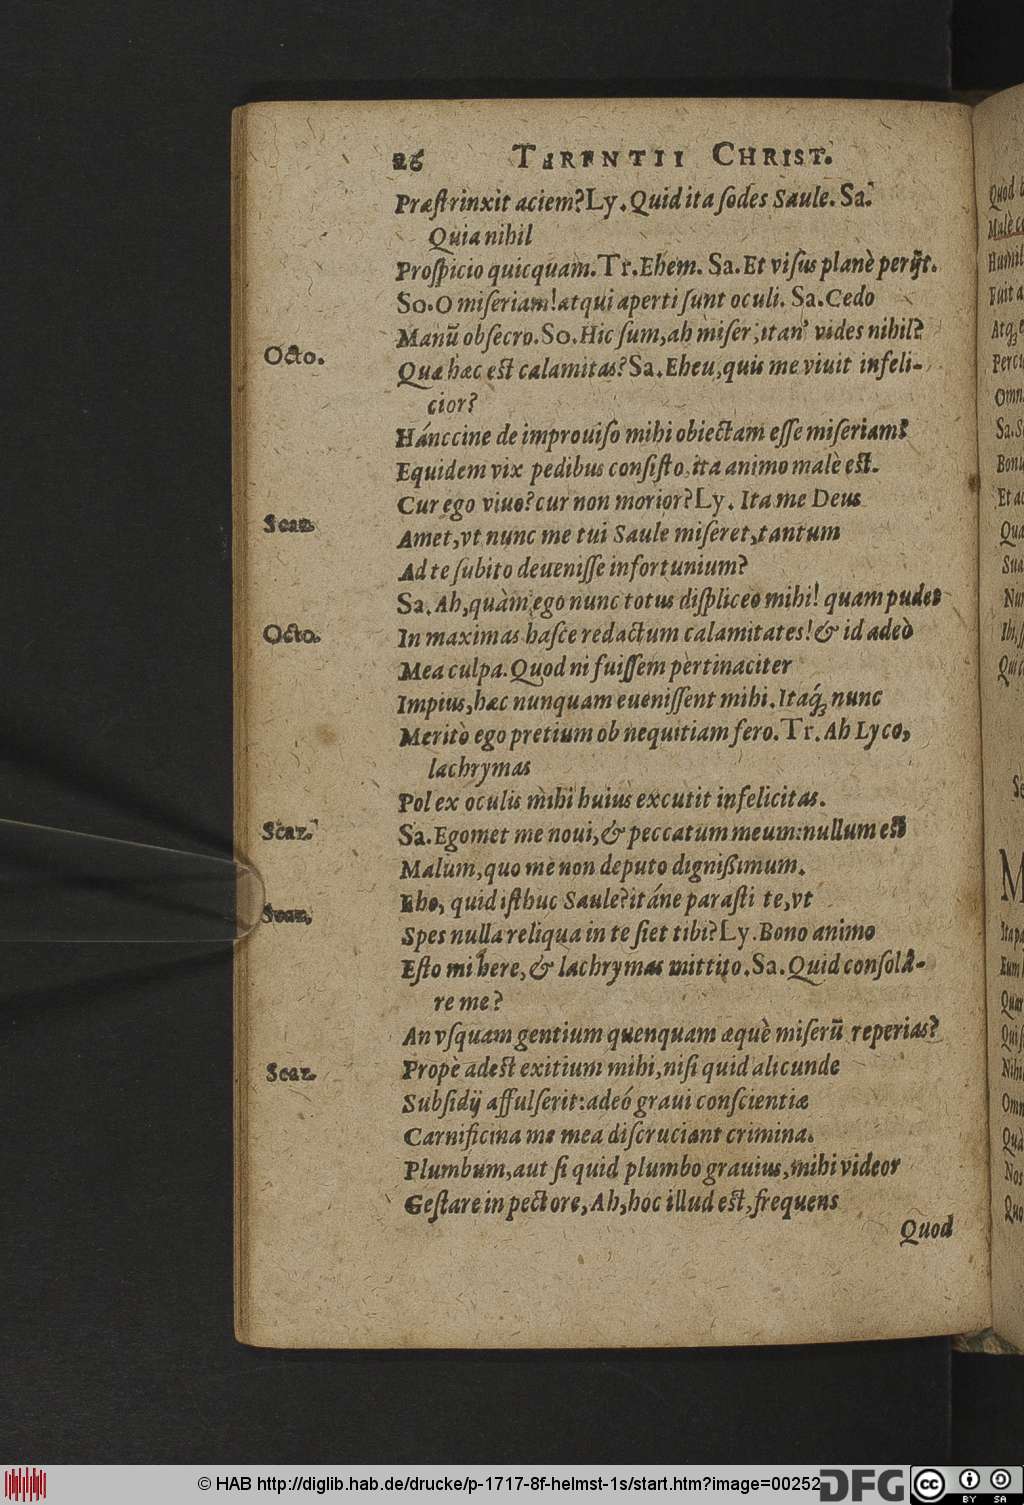 26 TERENTII CHRIST.
Præſtrinxit aciem? Ly. Quid ita ſodes Saule. Sa.
Quia nihil
Proſpicio quicquam. Tr. Ehem. Sa. Et viſus planè perijt.
So. O miſeriam! atqui aperti ſunt oculi. Sa. Cedo
Manũ obſecro. So. Hic ſum, ah miſer, itan' vides nihil?
Octo. Quæ hæc est calamitas? Sa. Eheu, quis me viuit infeli-
cior?
Hánccine de improuiſo mihi obiectam eſſe miſeriam?
Equidem vix pedibus conſiſto, ita animo malè est.
Cur ego viuo? cur non morior? Ly. Ita me Deus
Scaz. Amet, vt nunc me tui Saule miſeret, tantum
Ad te ſubito deueniſſe infortunium?
Sa. Ah, quàm ego nunc totus diſpliceo mihi! quam pudet
Octo. In maximas haſce redactum calamitates! & id adeò
Mea culpa. Quod ni fuiſſem pertinaciter
Impius, hæc nunquam eueniſſent mihi. Itaq́ꝫ nunc
Meritò ego pretium ob nequitiam fero. Tr. Ah Lyco,
lachrymas
Pol ex oculis mihi huius excutit infelicitas.
Scaz. Sa. Egomet me noui, & peccatum meum: nullum est
Malum, quo me non deputo digniſſimum.
Scaz. Eho, quid iſthuc Saule? itáne paraſti te, vt
Spes nulla reliqua in te ſiet tibi? Ly. Bono animo
Eſto mi here, & lachrymas mittito. Sa. Quid conſolá-
re me?
An vſquam gentium quenquam æquè miſerũ reperias?
Scaz. Propè adest exitium mihi, niſi quid alicunde
Subſidij affulſerit: adeó graui conſcientiæ
Carnificina me mea diſcruciant crimina.
Plumbum, aut ſi quid plumbo grauius, mihi videor
Geſtare in pectore, Ah, hoc illud est, frequens
Quod
© HAB http://diglib.hab.de/drucke/p-1717-8f-helmst-1s/start.htm?image=00252
DFG
cc BY SA